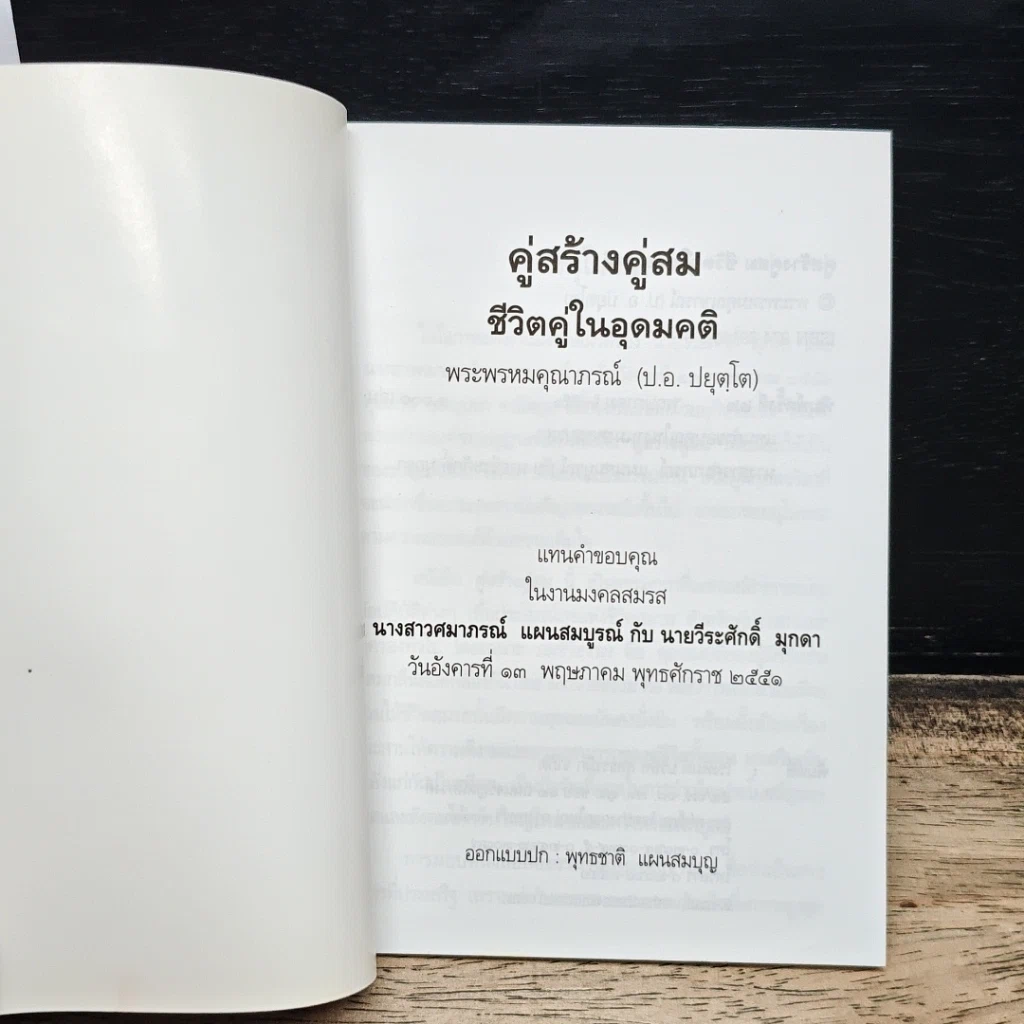 คู่สร้างคู่สม
ชีวิตคู่ในอุดมคติ
พระพรหมคุณาภรณ์ (ป.อ. ปยุตฺโต)
แทนคำขอบคุณ
ในงานมงคลสมรส
นางสาวศมาภรณ์ แผนสมบูรณ์ กับ นายวีระศักดิ์ มุกดา
วันอังคารที่ ๑๓ พฤษภาคม พุทธศักราช ๒๕๕๑
ออกแบบปก : พุทธชาติ แผนสมบุญ